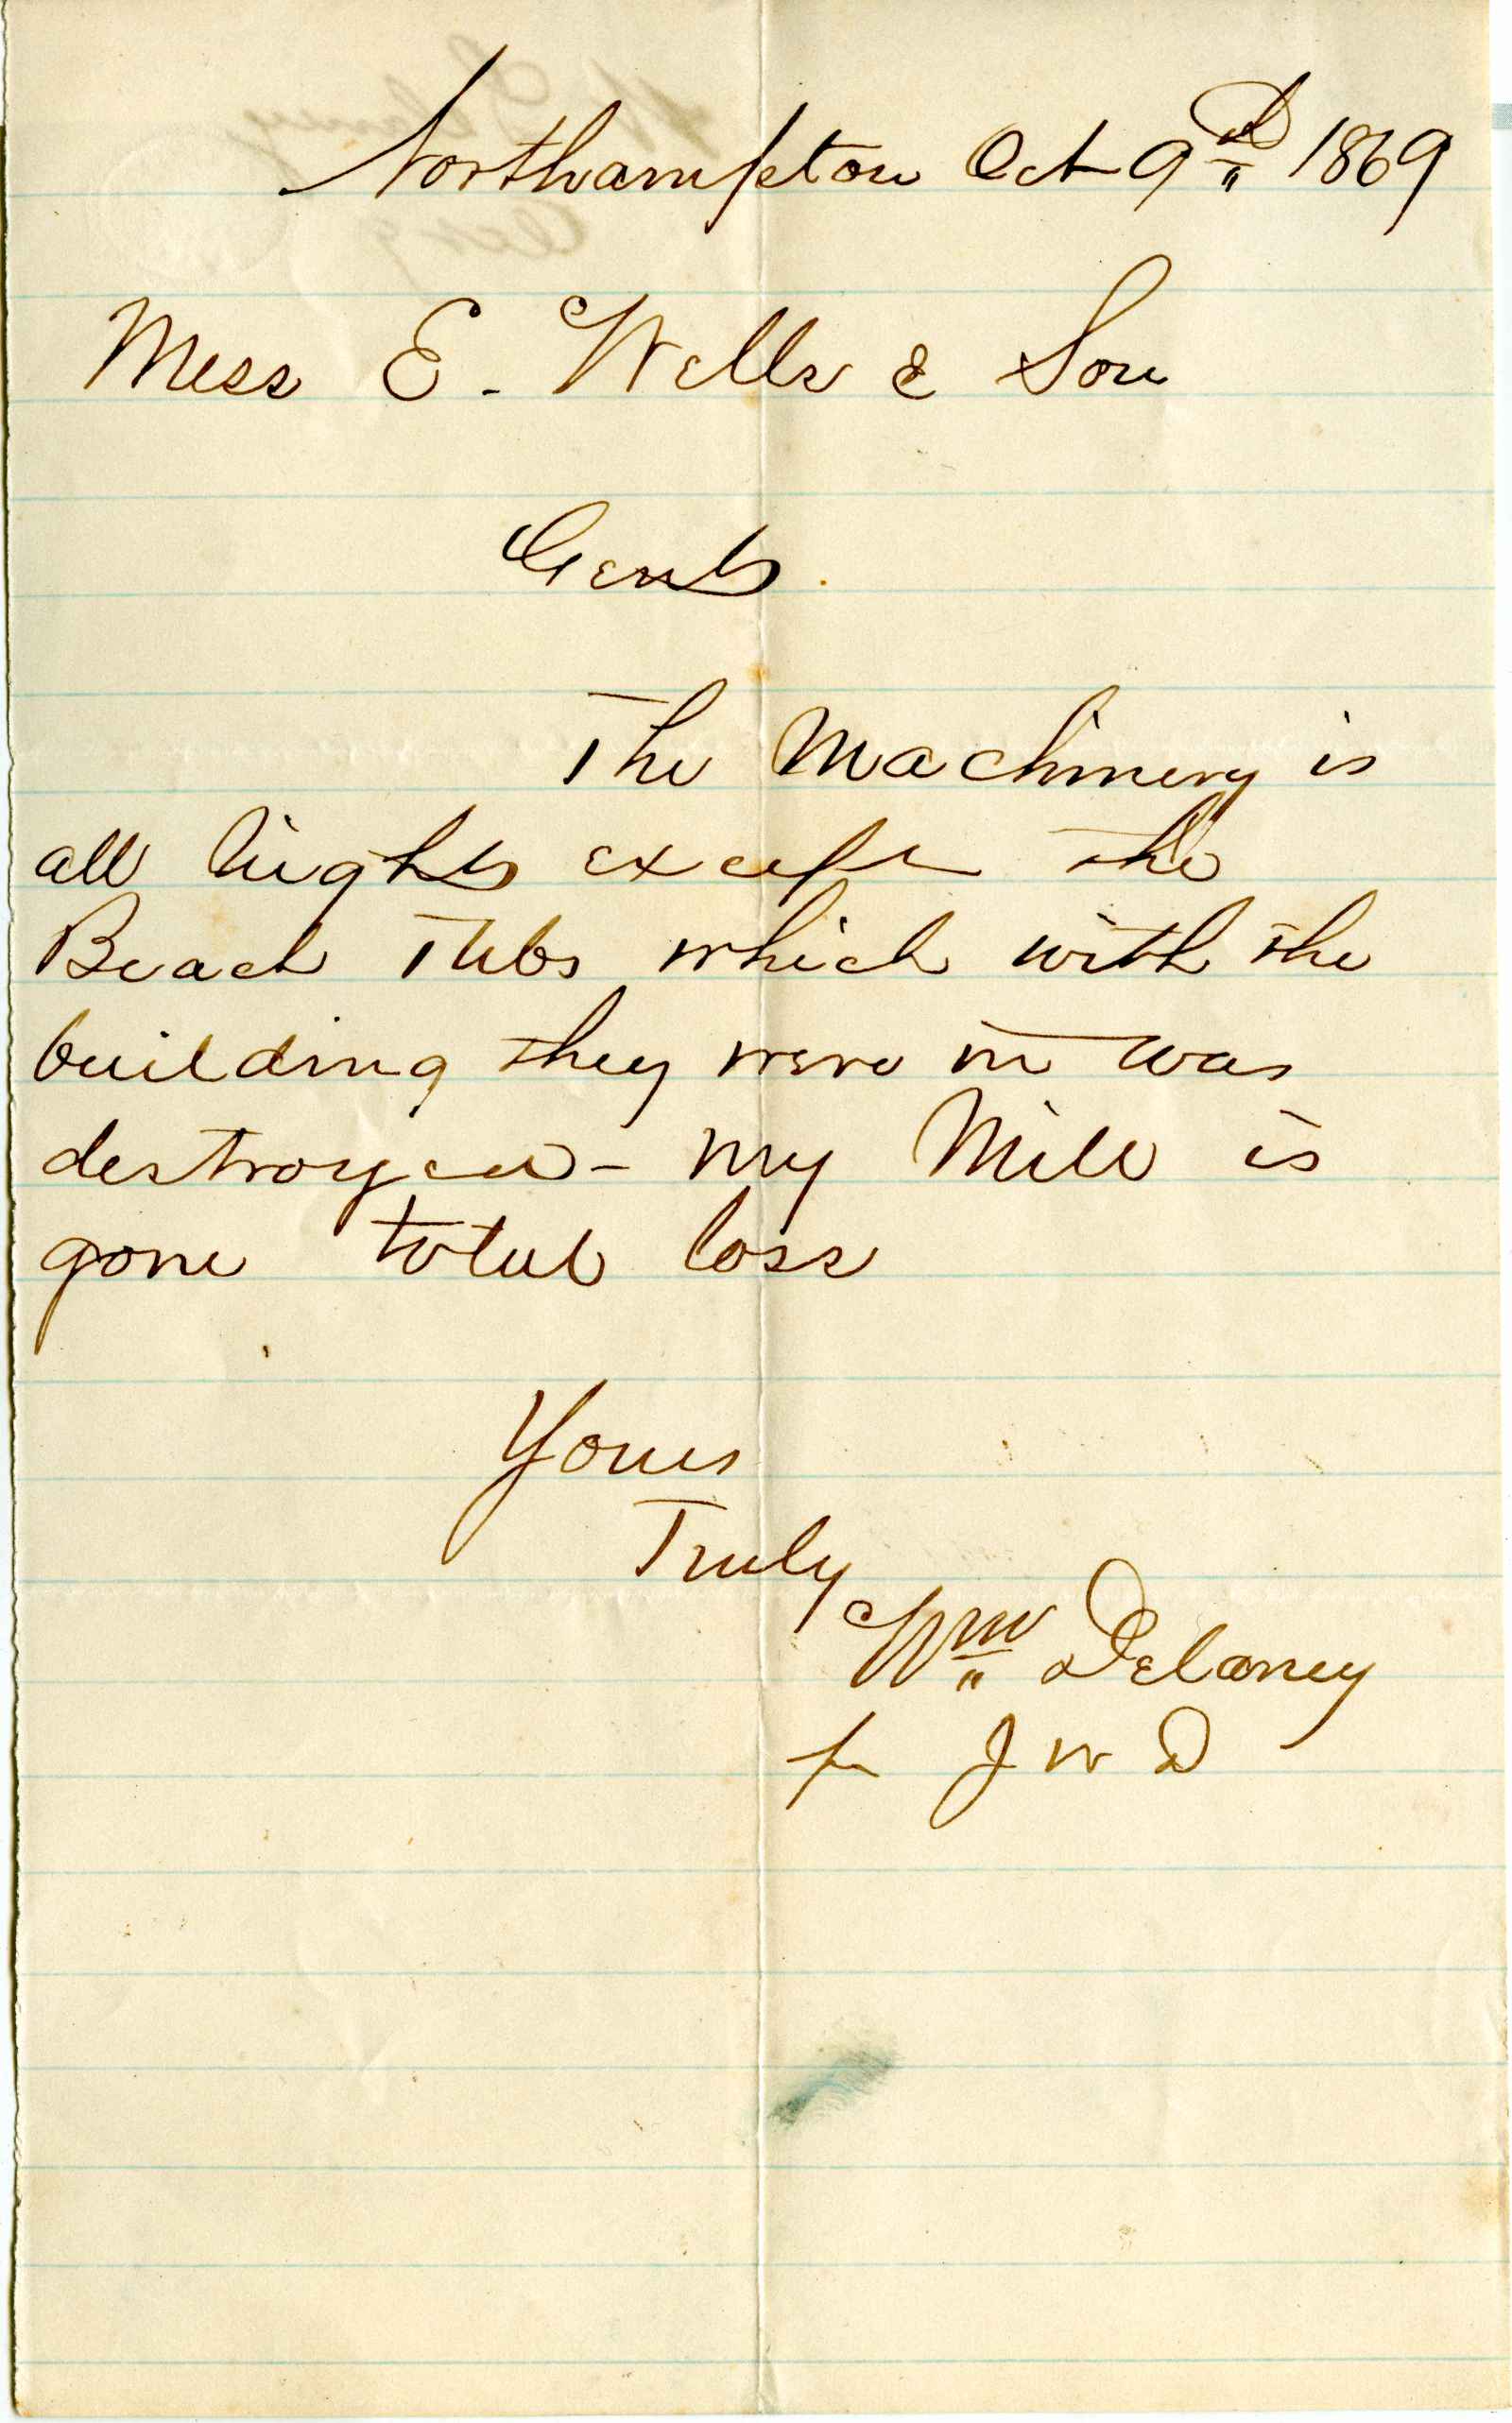 Northampton Oct 9th 1869
Mess E. Wells & Son
Gents.
The Machinery is
all right except the
Beach Tubs which with the
building they were in was
destroyed - my Mill is
gone total loss
Yours
Truly
Wm Delaney
pr J W D